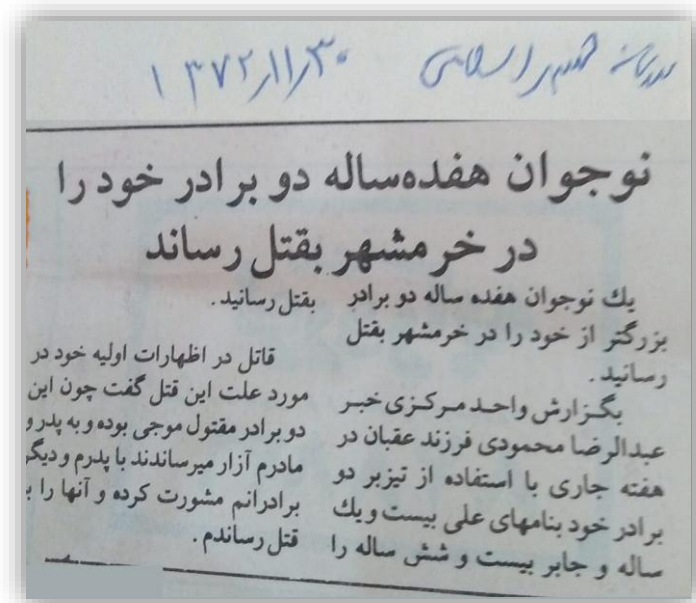 روزنامه جمهوری اسلامی ۱۳۷۲/۱۱/۳۰
نوجوان هفده‌ساله دو برادر خود را
در خرمشهر بقتل رساند
يك نوجوان هفده ساله دو برادر
بزرگتر از خود را در خرمشهر بقتل
رسانید.
بگزارش واحد مرکزی خبر
عبدالرضا محمودی فرزند عقبان در
هفته جاری با استفاده از تیزبر دو
برادر خود بنامهای علی بیست و يك
ساله و جابر بیست و شش ساله را
بقتل رسانید.
قاتل در اظهارات اولیه خود در
مورد علت این قتل گفت چون این
دو برادر مقتول موجی بوده و به پدر و
مادرم آزار میرساندند با پدرم و دیگر
برادرانم مشورت کرده و آنها را
قتل رساندم.